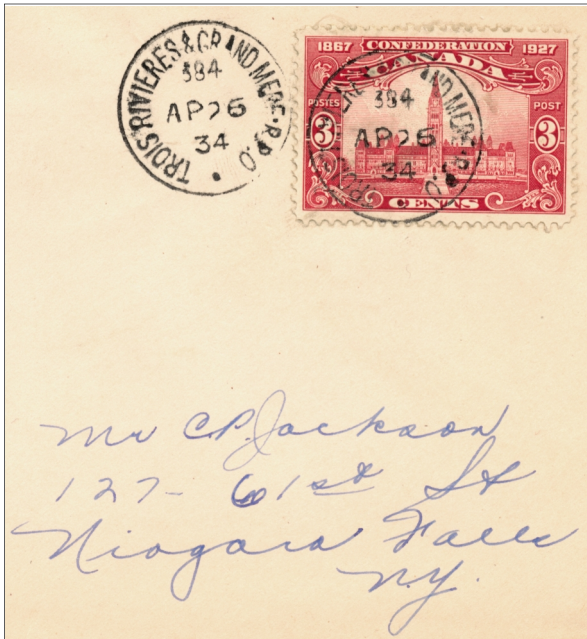 TROIS RIVIERES & GRAND MERE • R.P.O •
384
AP 26
34
1867 CONFEDERATION 1927
CANADA
POSTES POST
3 3
CENTS
384
AP 26
34
Mr C.P. Jackson
127 - 61st St
Niagara Falls
N.Y.